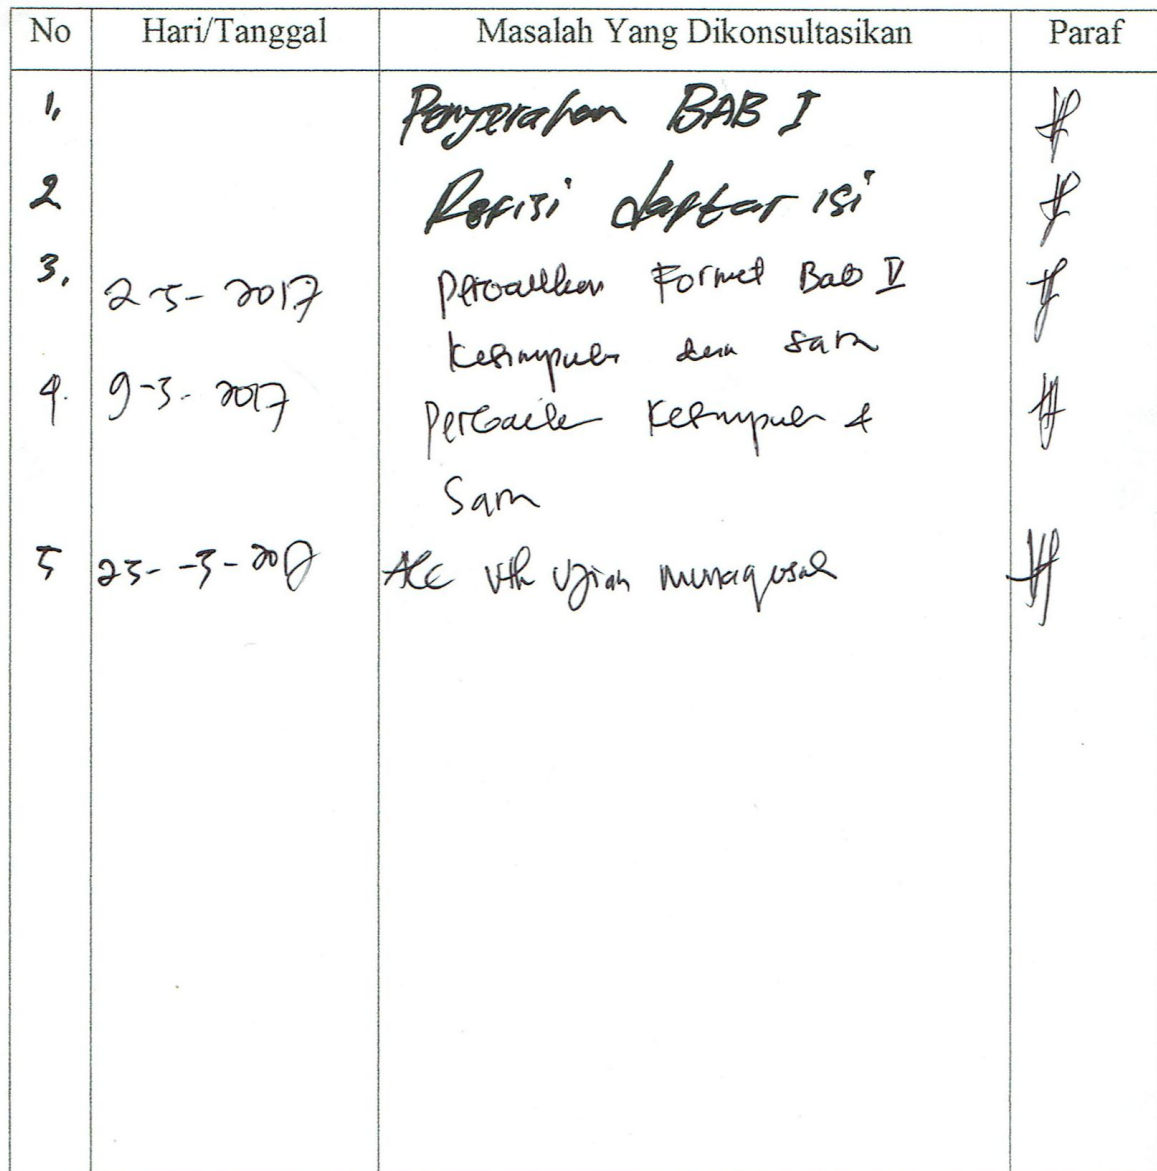 No Hari/Tanggal Masalah Yang Dikonsultasikan Paraf
1. Penyerahan BAB I
2 Refisi daftar isi
3. 2-3-2017 Perbaikan Format Bab V
Kesimpulan dan saran
4. 9-3-2017 Perbaikan Kesimpulan &
Saran
5 23--3-2017 Acc utk Ujian munaqosah